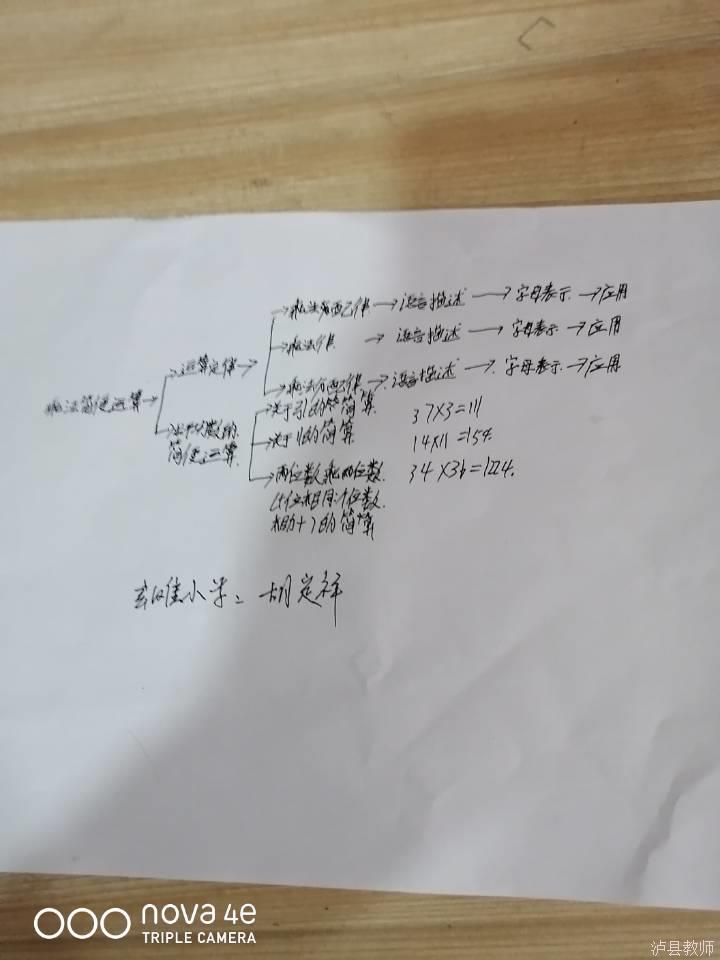 乘法分配律→语言描述→字母表示→应用
乘法律→语言描述→字母表示→应用
乘法简便运算→运算定律→
乘法分配律→语言描述→字母表示→应用
数的简便运算
关于 的简算 37×3=111
关于11的简算 14×11=154
两位数乘两位数 34×36=1224
位相同个位数
相加十的简算
小学 胡定祥
nova 4e
TRIPLE CAMERA
泸县教师